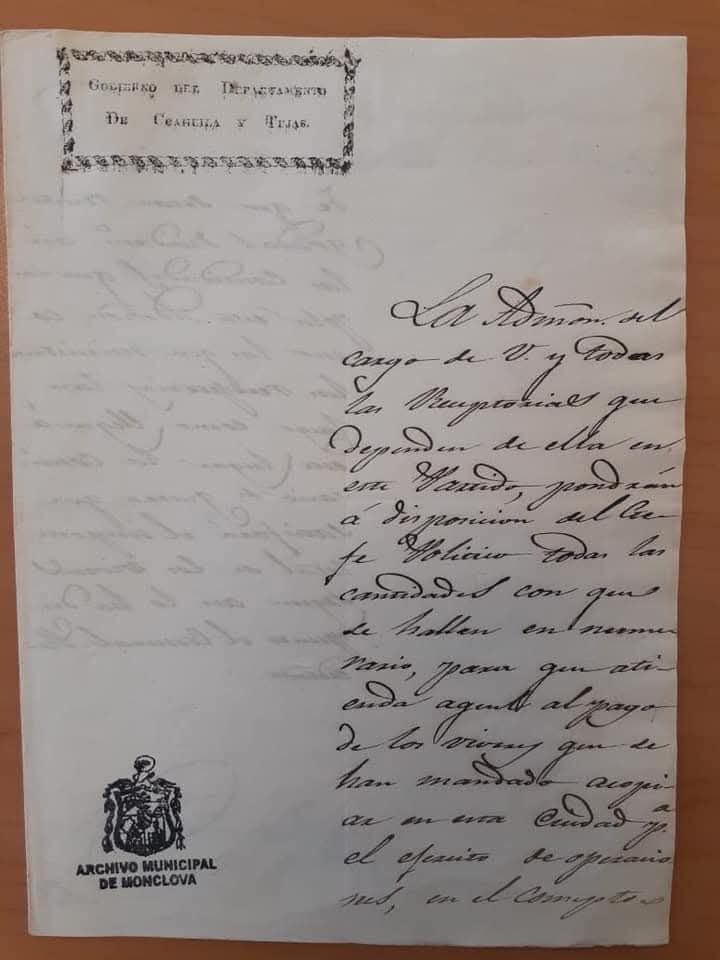 GOBIERNO DEL DEPARTAMENTO
DE COAHUILA Y TEJAS.
La Admon. del
cargo de V. y todas
las Receptorias que
dependen de ella en
este Partido, pondrán
á disposicion del Ge-
fe Politico todas las
cantidades con que
se hallen en nume-
rario, para que ati-
enda aquel al pago
de los viveres que se
han mandado acopi-
ar en esta Ciudad pa
el ejercito de operacio
nes, en el concepto
ARCHIVO MUNICIPAL
DE MONCLOVA